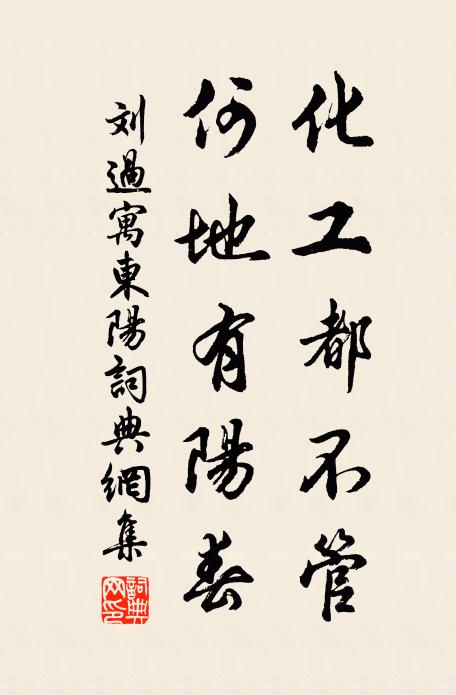 化工都不管
何地有陽春
刘過寓東陽詞典網集
詞典网印